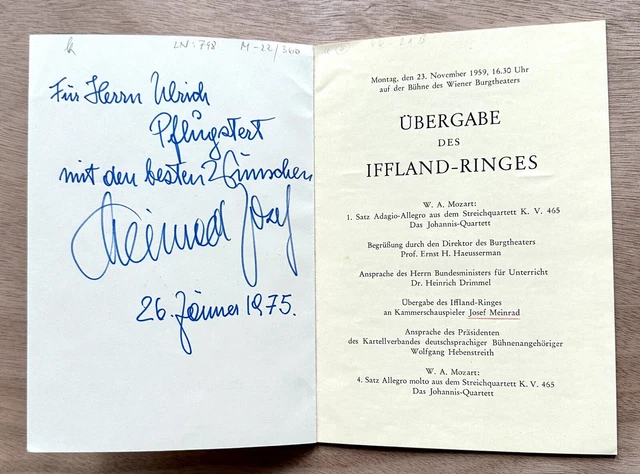 LN: 798
Für Herrn Ulrich
Pflugstert
mit den besten Wünschen
Meinrad Josef
26. Jänner 1975.
Montag, den 23. November 1959, 16.30 Uhr
auf der Bühne des Wiener Burgtheaters
ÜBERGABE
DES
IFFLAND-RINGES
W. A. Mozart:
1. Satz Adagio-Allegro aus dem Streichquartett K. V. 465
Das Johannis-Quartett
Begrüßung durch den Direktor des Burgtheaters
Prof. Ernst H. Haeusserman
Ansprache des Herrn Bundesministers für Unterricht
Dr. Heinrich Drimmel
Übergabe des Iffland-Ringes
an Kammerschauspieler Josef Meinrad
Ansprache des Präsidenten
des Kartellverbandes deutschsprachiger Bühnenangehöriger
Wolfgang Hebenstreith
W. A. Mozart:
4. Satz Allegro molto aus dem Streichquartett K. V. 465
Das Johannis-Quartett